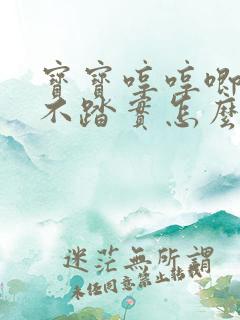 寶寶哼哼唧
不踏實怎麼
迷茫無所謂
未任同意禁止轉載